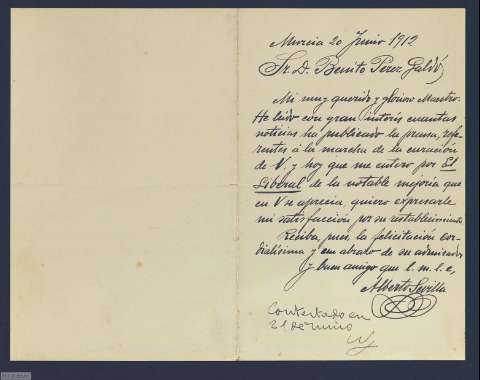 Murcia 20 Junio 1912
Sr. D. Benito Perez Galdós
Mi muy querido y glorioso Maestro:
He leido con gran interés cuantas
noticias ha publicado la prensa, refe-
rentes á la marcha de la curación
de V. y hoy que me entero por El
Liberal de la notable mejoría que
en V. se aprecia, quiero expresarle
mi satisfacción por su restablecimiento
Reciba, pues, la felicitación cor-
dialísima y un abrazo de su admirador
y buen amigo que b. m. l. e,
Alberto Sevilla
Contestado en
21 de Junio